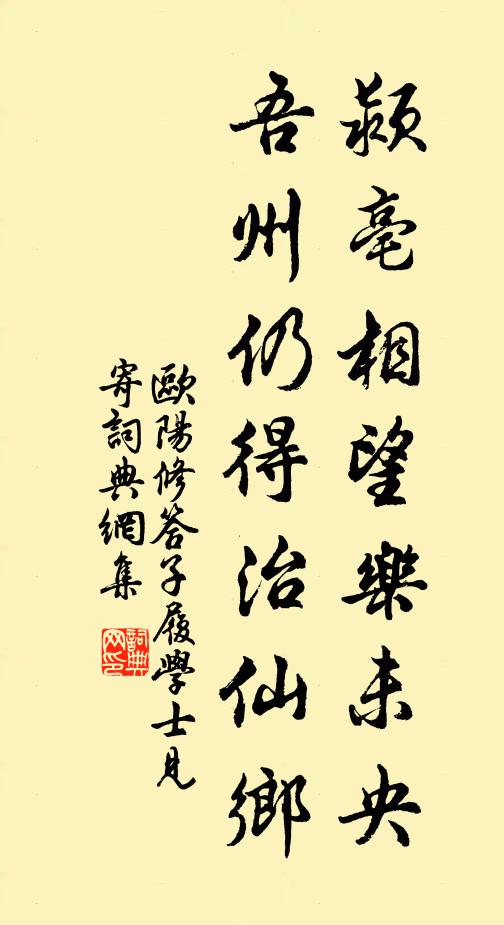 颍亳相望樂未央
吾州仍得治仙鄉
歐陽修答子履學士見
寄詞典網集
詞典
网印